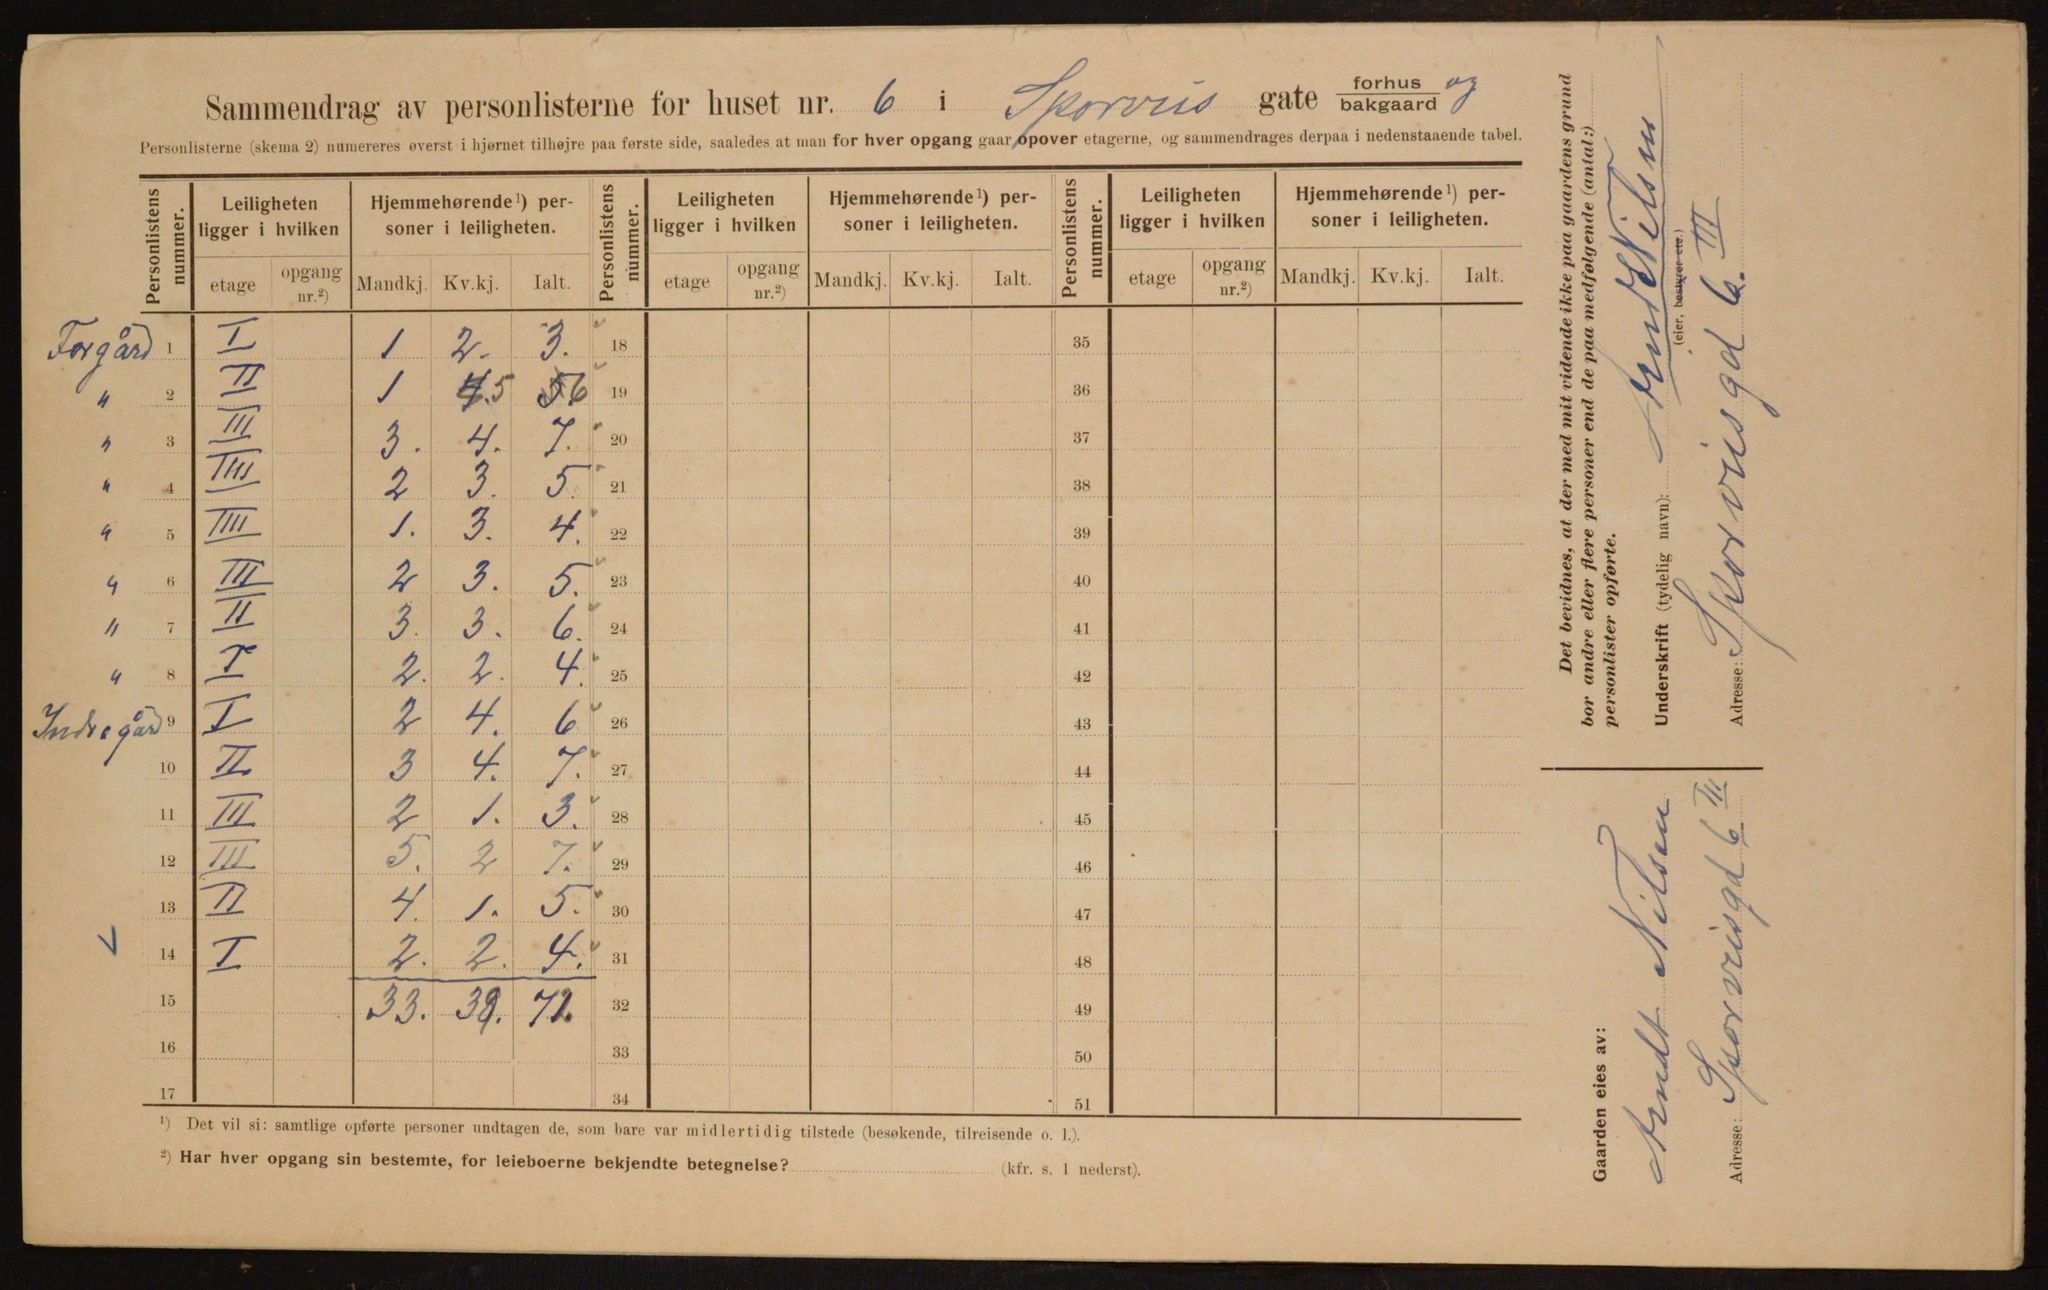 Sammendrag av personlisterne for huset nr. 6 i Sporveis gate forhus og
bakgaard
Personlisterne (skema 2) numereres øverst i hjørnet tilhøjre paa første side, saaledes at man for hver opgang gaar opover etagerne, og sammendrages derpaa i nedenstaaende tabel.
Personlistens nummer. Leiligheten ligger i hvilken Hjemmehørende ¹) personer i leiligheten. Personlistens nummer. Leiligheten ligger i hvilken Hjemmehørende ¹) personer i leiligheten. Personlistens nummer. Leiligheten ligger i hvilken Hjemmehørende ¹) personer i leiligheten.
etage opgang nr.²) Mandkj. Kv.kj. Ialt. etage opgang nr.²) Mandkj. Kv.kj. Ialt. etage opgang nr.²) Mandkj. Kv.kj. Ialt.
Forgård 1 I 1 2. 3. 18 35
" 2 II 1 5 6 19 36
" 3 III 3. 4. 7. 20 37
" 4 IIII 2 3. 5. 21 38
" 5 IIII 1. 3. 4. 22 39
" 6 III 2 3. 5. 23 40
" 7 II 3. 3. 6. 24 41
" 8 I 2. 2. 4. 25 42
Indregård 9 I 2 4. 6 26 43
10 II 3 4. 7. 27 44
11 III 2 1. 3. 28 45
12 III 5. 2 7. 29 46
13 II 4. 1. 5. 30 47
14 I 2. 2. 4. 31 48
15 33. 39. 72. 32 49
16 33 50
17 34 51
¹) Det vil si: samtlige opførte personer undtagen de, som bare var midlertidig tilstede (besøkende, tilreisende o. l.).
²) Har hver opgang sin bestemte, for leieboerne bekjendte betegnelse? (kfr. s. 1 nederst).
Det bevidnes, at der med mit vidende ikke paa gaardens grund
bor andre eller flere personer end de paa medfølgende (antal:)
personlister opførte.
Underskrift (tydelig navn): Arndt Nilsen
(eier, bestyrer etc.)
Adresse: Sporveisgd 6. III
Gaarden eies av:
Arndt Nilsen
Adresse: Sporveisgd 6 III